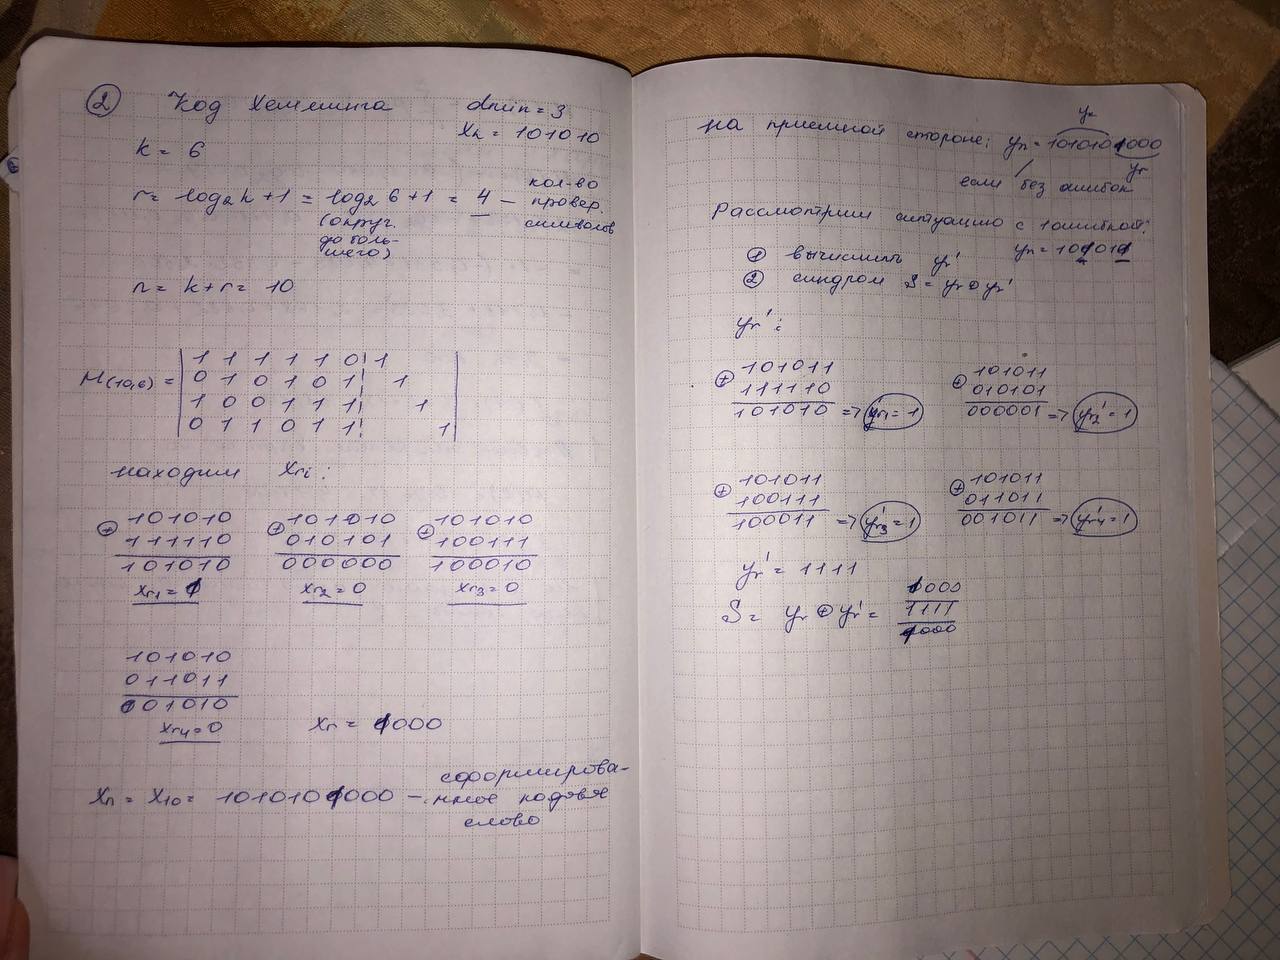 ② Код Хемминга dmin = 3
Xk = 101010
k = 6
r = log2k + 1 = log2 6 + 1 = 4 – кол-во провер. символов
(округ. до большего)
n = k + r = 10
M(10,6) =
1 1 1 1 1 0 1
0 1 0 1 0 1 1
1 0 0 1 1 1 1
0 1 1 0 1 1 1
находим Xri:
⊕ 101010 ⊕ 101010 ⊕ 101010
111110 010101 100111
101010 000000 100010
xr2 = 0 xr3 = 0
101010
011011
001010
xr4 = 0 Xr = 1000
Xn = X10 = 1010101000 – сформирова-
нное кодовое
слово
на приемной стороне: yn = 1010101000
yk
yr
если без ошибок
Рассмотрим ситуацию с 1 ошибкой:
① вычислить yr'
② синдром S = yr ⊕ yr'
yr':
⊕ 101011 ⊕ 101011
111110 010101
101010 => yr1' = 1 000001 => yr2' = 1
⊕ 101011 ⊕ 101011
100111 011011
100011 => yr3' = 1 001011 => yr4' = 1
yr' = 1111
S = yr ⊕ yr' =
1111